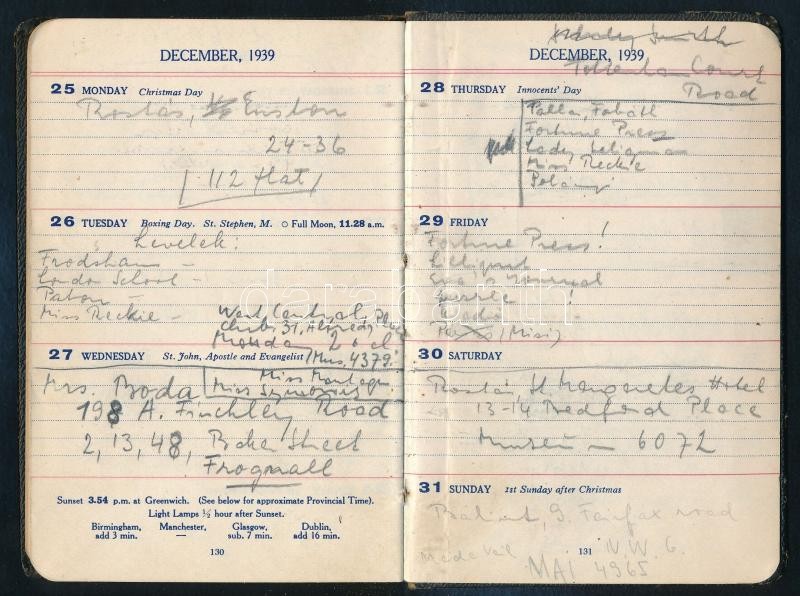 DECEMBER, 1939
25 MONDAY Christmas Day
Rostás, Euston
24-36
112 flat
26 TUESDAY Boxing Day. St. Stephen, M. ○ Full Moon, 11.28 a.m.
Levelek:
Frodsham –
London School –
Paton –
Miss Reckie –
West Central
Clubs 31, Alfred Place
Monday
/Mus. 4379.
27 WEDNESDAY St. John, Apostle and Evangelist
Miss Montagu
Mrs. Boda Miss
198 A. Finchley Road
2, 13, 48, Baker Street
Frognall
Sunset 3.54 p.m. at Greenwich. (See below for approximate Provincial Time).
Light Lamps ½ hour after Sunset.
Birmingham, Manchester, Glasgow, Dublin,
add 3 min. — sub. 7 min. add 16 min.
130
DECEMBER, 1939
Tottenham Court
Road
28 THURSDAY Innocents' Day
Fortune Press
Lady
Miss Reckie
Polányi
29 FRIDAY
Fortune Press!
!
Rádió
(Misi)
30 SATURDAY
Rostás, St Margaretes Hotel
13-14 Bedford Place
Museum – 6072
31 SUNDAY 1st Sunday after Christmas
Bálint, 9. Fairfax road
N.W. 6.
MAI 4965
131
darabanth